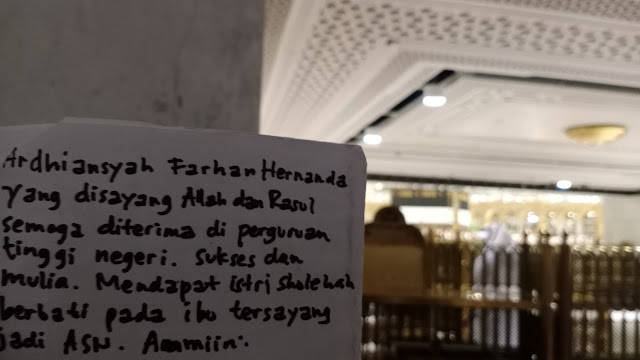 Ardhiansyah Farhan Hernanda
yang disayang Allah dan Rasul
semoga diterima di perguruan
tinggi negeri. Sukses dan
mulia. Mendapat istri sholehah
berbati pada ibu tersayang
jadi ASN. Ammiin.